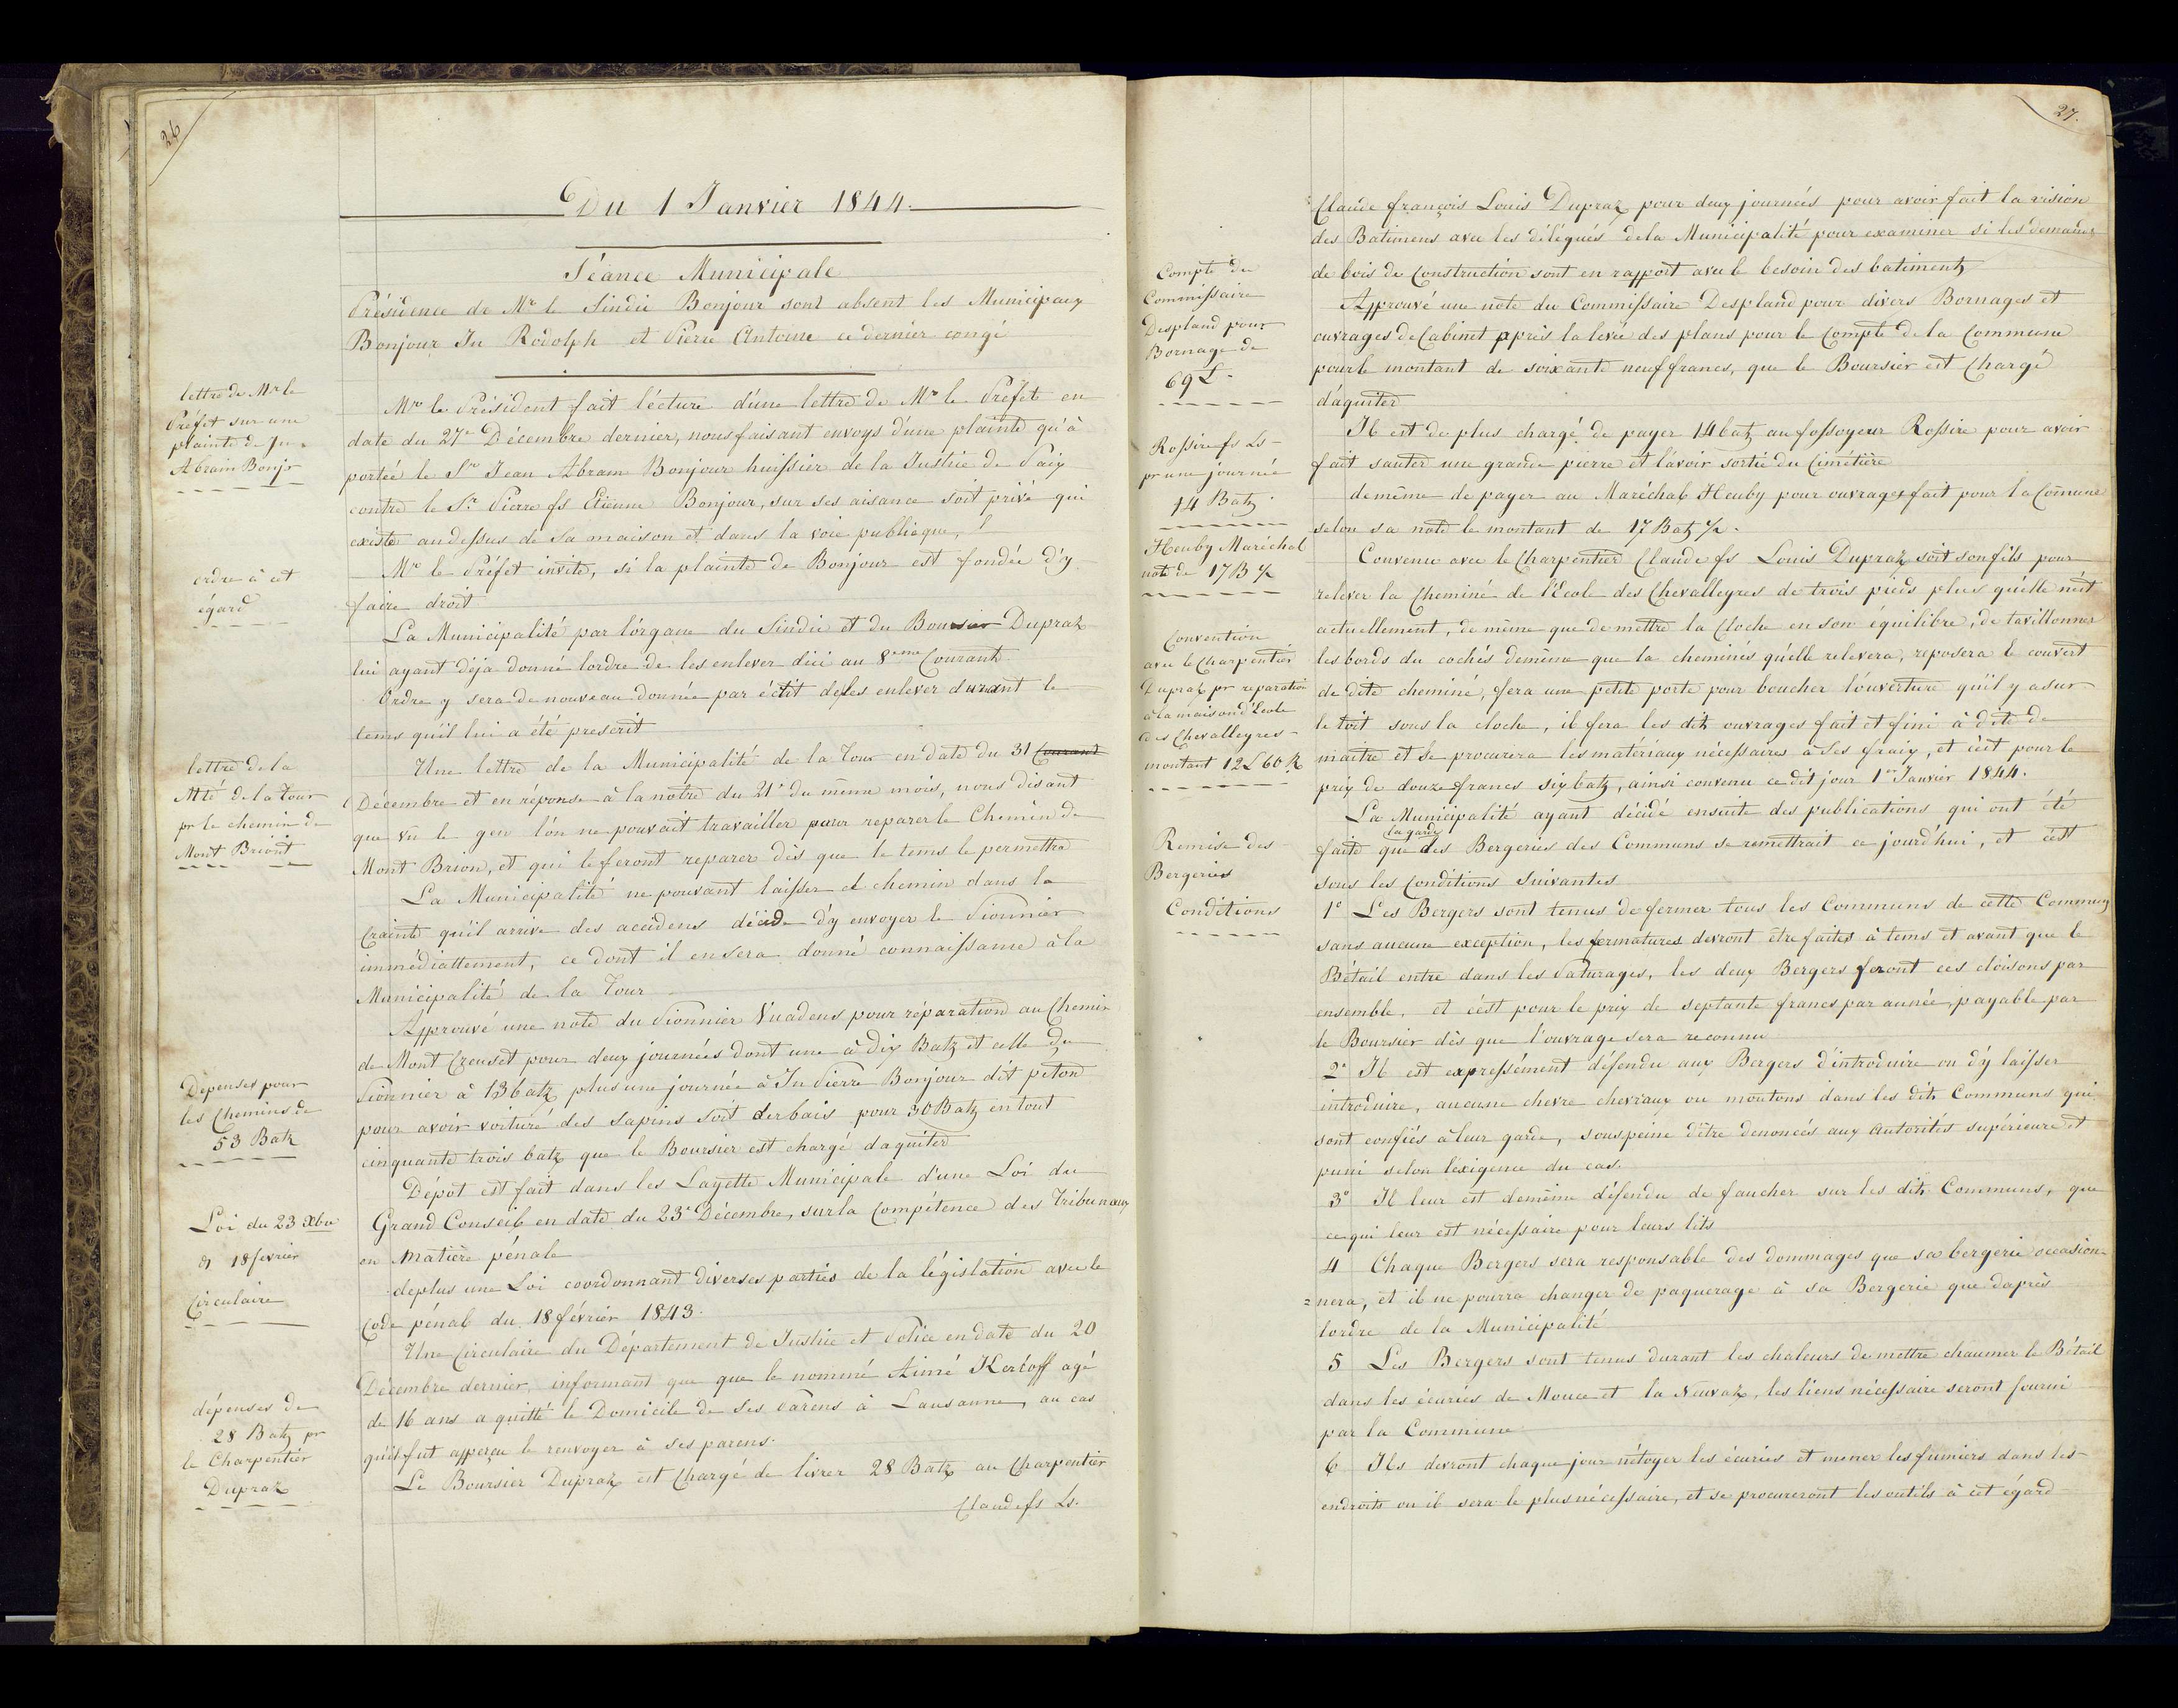 26
Du 1 Janvier 1844.
Séance Municipale
Présidence de Mr le Sindic Bonjour sont absent les Municipaux
Bonjour Jn Rodolph et Pierre Antoine ce dernier congé
lettre de Mr le
Préfet sur une
plainte de Jn
Abram Bonjr
Mr le Président fait lécture d'une lettre de Mr le Préfet en
date du 27e Décembre dernier, nous faisant envoys d'une plainte qu'à
portée le Sr Jean Abram Bonjour huissier de la Justice de Paix
contre le Sr Pierre fs Etienne Bonjour, sur ses aisance soit privé qui
existe au dessus de sa maison et dans la voie publieque,
ordre à cet
égard
Mr le Préfet invite, si la plainte de Bonjour est fondée d'y
faire droit
La Municipalité par lórgane du Sindic et du Boursier Dupraz
lui ayant déja donné lordre de les enlever dici au 8eme Courant
Ordre y sera de nouveau donnée par éctit de les enlever durant le
tems qu'il lui a été prescrit
lettre de la
Mté de la Tour
pr le chemin de
Mont Briont
Une lettre de la Municipalité de la Tour en date du 31 Courant
Décembre et en réponse à la notre du 21e du même mois, nous disant
que vû le gew lón ne pouvait travailler pour reparer le Chemin de
Mont Brion, et qui le feront reparer dès que le tems le permettra
La Municipalité ne pouvant laisser et chemin dans la
Crainte qu'il arrive des accidens décide d'y envoyer le Pionnier
immédiattement, ce dont il en sera donné connaissance à la
Municipalité de la Tour
Dépenses pour
les Chemins de
53 Batz
Approuvé une note du Pionnier Vuadens pour réparation au Chemin
de Mont Creuset pour deux journées dont une à Dix Batz et celle du
Pionnier à 13 batz plus une journée à Jn Pierre Bonjour dit piton
pour avoir voituré des sapins soit des bois pour 30 Batz en tout
cinquante trois batz que le Boursier est chargé daquiter
Loi du 23 Xbre
et 18 fevrier
Circulaire
Dépot est fait dans les Layette Municipale d'une Loi du
Grand Conseil en date du 23e Décembre, sur la Compétence des Tribunaux
en matière pénale
deplus une Loi coordonnant diverses parties de la législation avec le
Code pénal du 18 février 1843.
Une Circulaire du Département de Justice et Police en date du 20
Décembre dernier, informant que que le nommé Aimé Keréoff agé
de 16 ans a quitté le Domicile de Ses Parens à Lausanne, au cas
qu'il fut apperçu le renvoyer à ses parens.
dépenses de
28 Batz pr
le Charpentier
Dupraz
Le Boursier Dupraz est Chargé de livrer 28 Batz au Charpentier
Claude fs Ls.
27.
Claude françois Louis Dupraz pour deux journées pour avoir fait la vision
des Batimens avec les délégués de la Municipalité pour examiner si les demandes
de bois de Construction sont en rapport avec le besoin des batiments
Compte du
Commissaire
Despland pour
Bornage de
69 L.
Approuvé une note du Commissaire Despland pour divers Bornages et
ouvrages de Cabinet après la levée des plans pour le Compte de la Commune
pour le montant de soixante neuf francs, que le Boursier est Chargé
d'aquiter
Rossire fs Ls
pr une journée
14 Batz.
Il est de plus chargé de payer 14 batz au fossoyeur Rossire pour avoir
fait sauter une grande pierre et l'avoir sortie du Cimetière
Heuby Maréchal
note de 17 B ½
de même de payer au Maréchal Heuby pour ouvrages fait pour la Commune
selon sa note le montant de 17 Batz ½.
Convention
avec le Charpentier
Dupraz pr reparation
à la maison d'Ecole
des Chevalleyres
montant 12 L 60 R
Convenu avec le Charpentier Claude fs Louis Dupraz soit son fils pour
relever la Cheminé de l'Ecole des Chevalleyres de trois pieds plus qu'elle n'ést
actuellement, de même que de mettre la Cloche en son équilibre, de tavillonner
les bords du cochés de même que la cheminés qu'elle relevera, reposera le couvert
de dite cheminé, fera une petite porte pour boucher l'ouverture qu'il y a sur
le toit sous la cloche, il fera les dits ouvrages fait et fini à dite de
maitre et se procurera les matériaux nécessaires à ses fraix, et c'est pour le
prix de douze francs six batz, ainsi convenu ce dit jour 1er Janvier 1844.
Remise des
Bergeries
Conditions
La Municipalité ayant décidé ensuite des publications qui ont été
faite que la garde des Bergeries des Communs se remettrait ce jourd'hui, et c'est
sous les Conditions Suivantes
1o Les Bergers sont tenus de fermer tous les Communs de cette Commune
sans aucune exception, les fermatures devront être faites à tems et avant que le
Bétail entre dans les Paturages, les deux Bergers feront ces cloisons par
ensemble, et c'est pour le prix de septante francs par année, payable par
le Boursier dès que l'ouvrage sera reconnu
2o Il est expressément défendu aux Bergers d'introduire ou d'y laisser
introduire, aucune chevre chévraux ou moutons dans les dits Communs qui
sont confiés à leur garde, sous peine d'être denoncés aux Autorités supérieure et
puni selon l'exigence du cas.
3o Il leur est demême défendu de faucher sur les dits Communs, que
ce qui leur est nécessaire pour leurs lits
4 Chaque Bergers sera responsable des dommages que sa bergerie occasion
=nera, et il ne pourra changer de paquerage à sa Bergerie que daprès
lordre de la Municipalité
5 Les Bergers sont tenus durant les chaleurs de mettre chaumer le Bétail
dans les écuries de Mouce et la Neuvaz, les liens nécessaire seront fourni
par la Commune
6 Ils devront chaque jour nétoyer les écuries et mener les fumiers dans les
endroits ou il sera le plus nécessaire, et se procureront les outils à cet égard